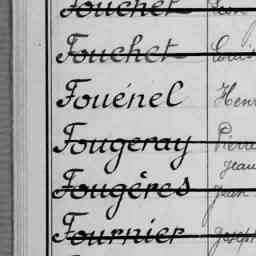 Fouchet Jean
Fouchet Louis
Fouénel Henr
Fougeray Pierre
Jean
Fougères Jean
Fournier Joseph